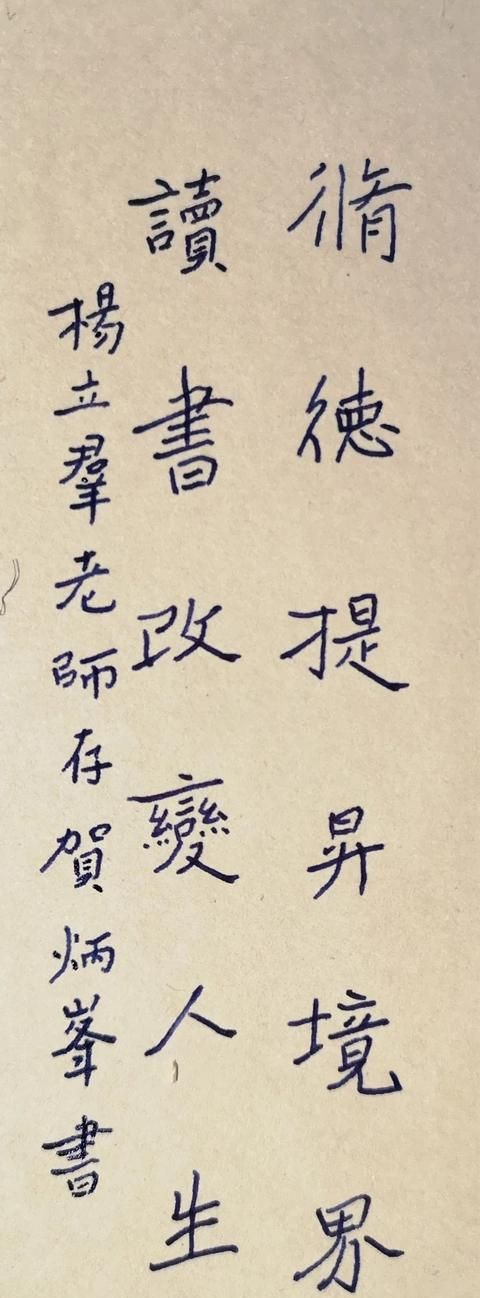 脩德提昇境界
讀書改變人生
楊立羣老師存賀炳峯書